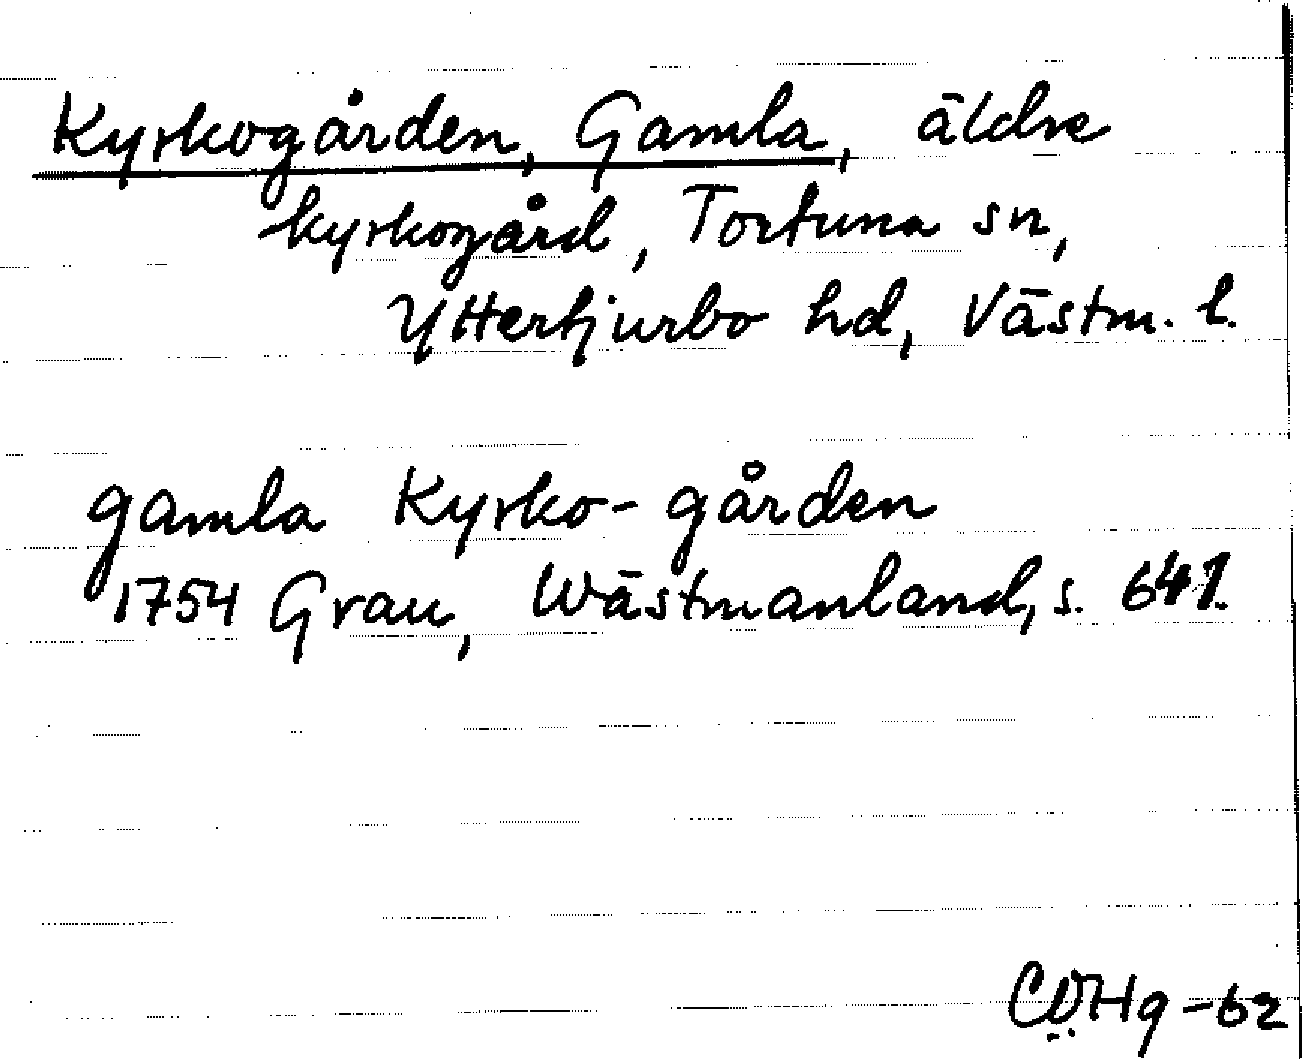 Kyrkogården, Gamla, äldre
kyrkogård, Tortuna sn,
Yttertjurbo hd, Västm. l.
gamla Kyrko-gården
1754 Grau, Wästmanland, s. 641.
CÖHg -62